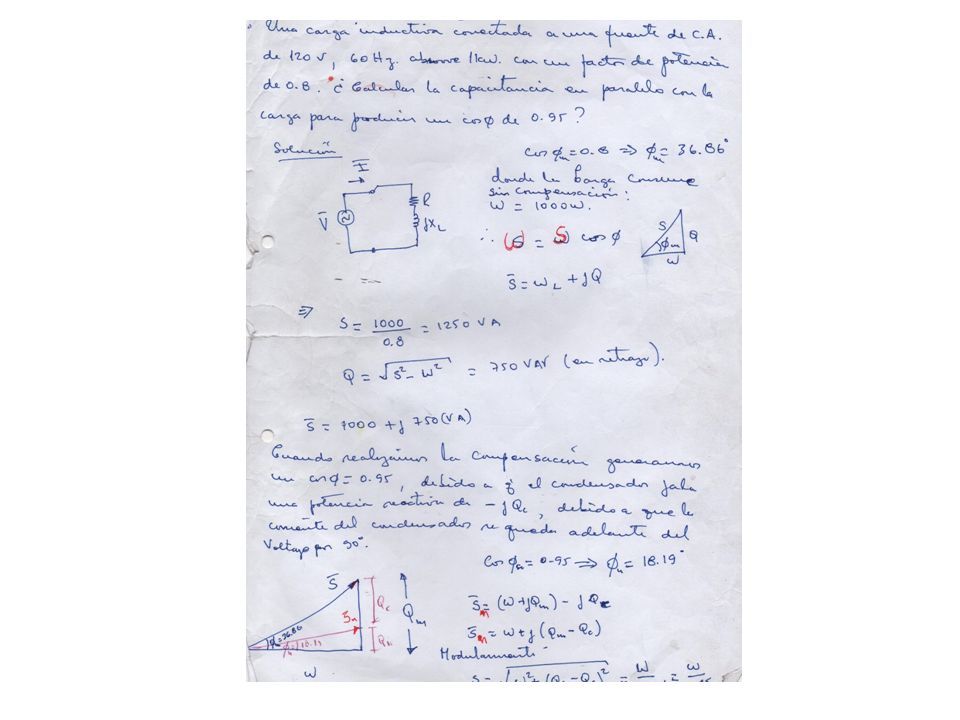 Una carga inductiva conectada a una fuente de C.A.
de 120 V, 60 Hz. absorve 1kw. con un factor de potencia
de 0.8. ¿ Calcular la capacitancia en paralelo con la
carga para producir un cosφ de 0.95?
Solución
cos φm = 0.8 ⇒ φm = 36.86°
I
V
R
jXL
donde la carga consume
sin compensación:
W = 1000w.
∴ W = S cos φ
S
Q
φm
W
S = WL + jQ
⇒
S = 1000 / 0.8 = 1250 VA
Q = √S² - W² = 750 VAR (en retraso).
S = 1000 + j 750 (VA)
Cuando realizamos la compensación generamos
un cosφ = 0.95, debido a q' el condensador jala
una potencia reactiva de - jQc, debido a que la
corriente del condensador se queda adelante del
Voltaje por 90°.
Cos φn = 0.95 ⇒ φn = 18.19°
S
Sn
Qc
Qn
Qm
φ=36.86
φn=18.19
W
Sn = (W + jQm) - jQc
Sn = W + j (Qm - Qc)
Modularmente
S = √W² + (Qm - Qc)² = W